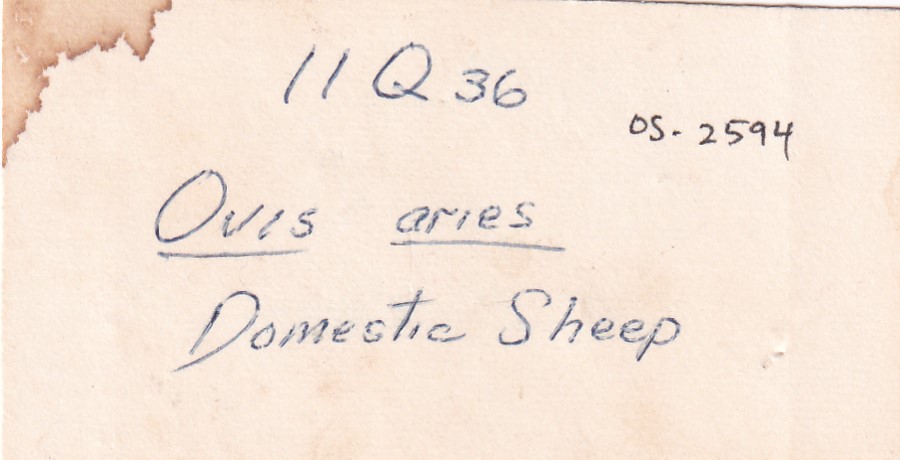 11 Q 36
OS- 2594
Ovis aries
Domestic Sheep